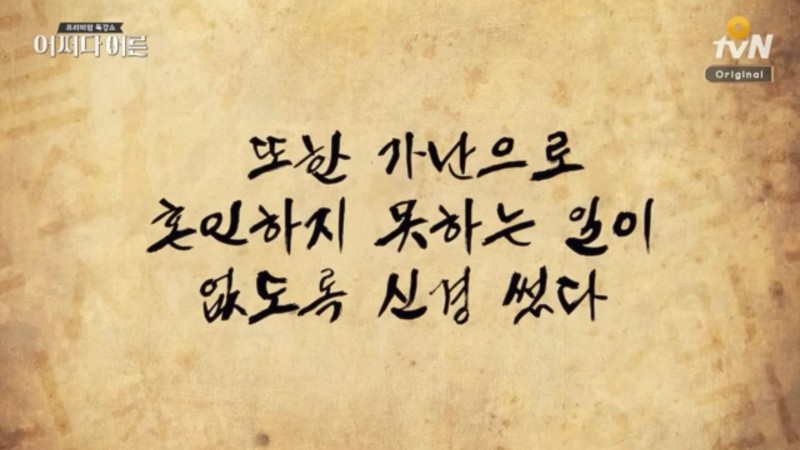 프리미엄 특강쇼
어쩌다 어른
tvN
Original
또한 가난으로
혼인하지 못하는 일이
없도록 신경 썼다